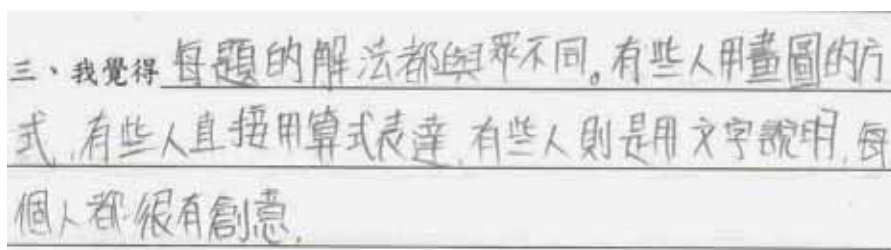 三、我覺得每題的解法都與眾不同。有些人用畫圖的方
式,有些人直接用算式表達,有些人則是用文字說明,每
個人都很有創意.